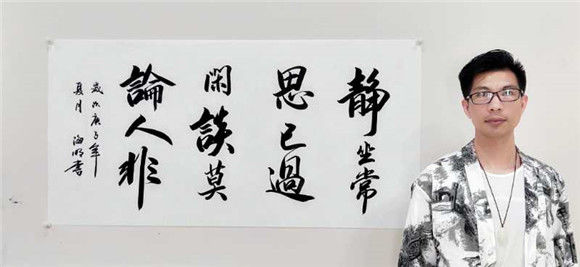 静坐常
思己過
閑談莫
論人非
歲次庚子年
夏月 海明書